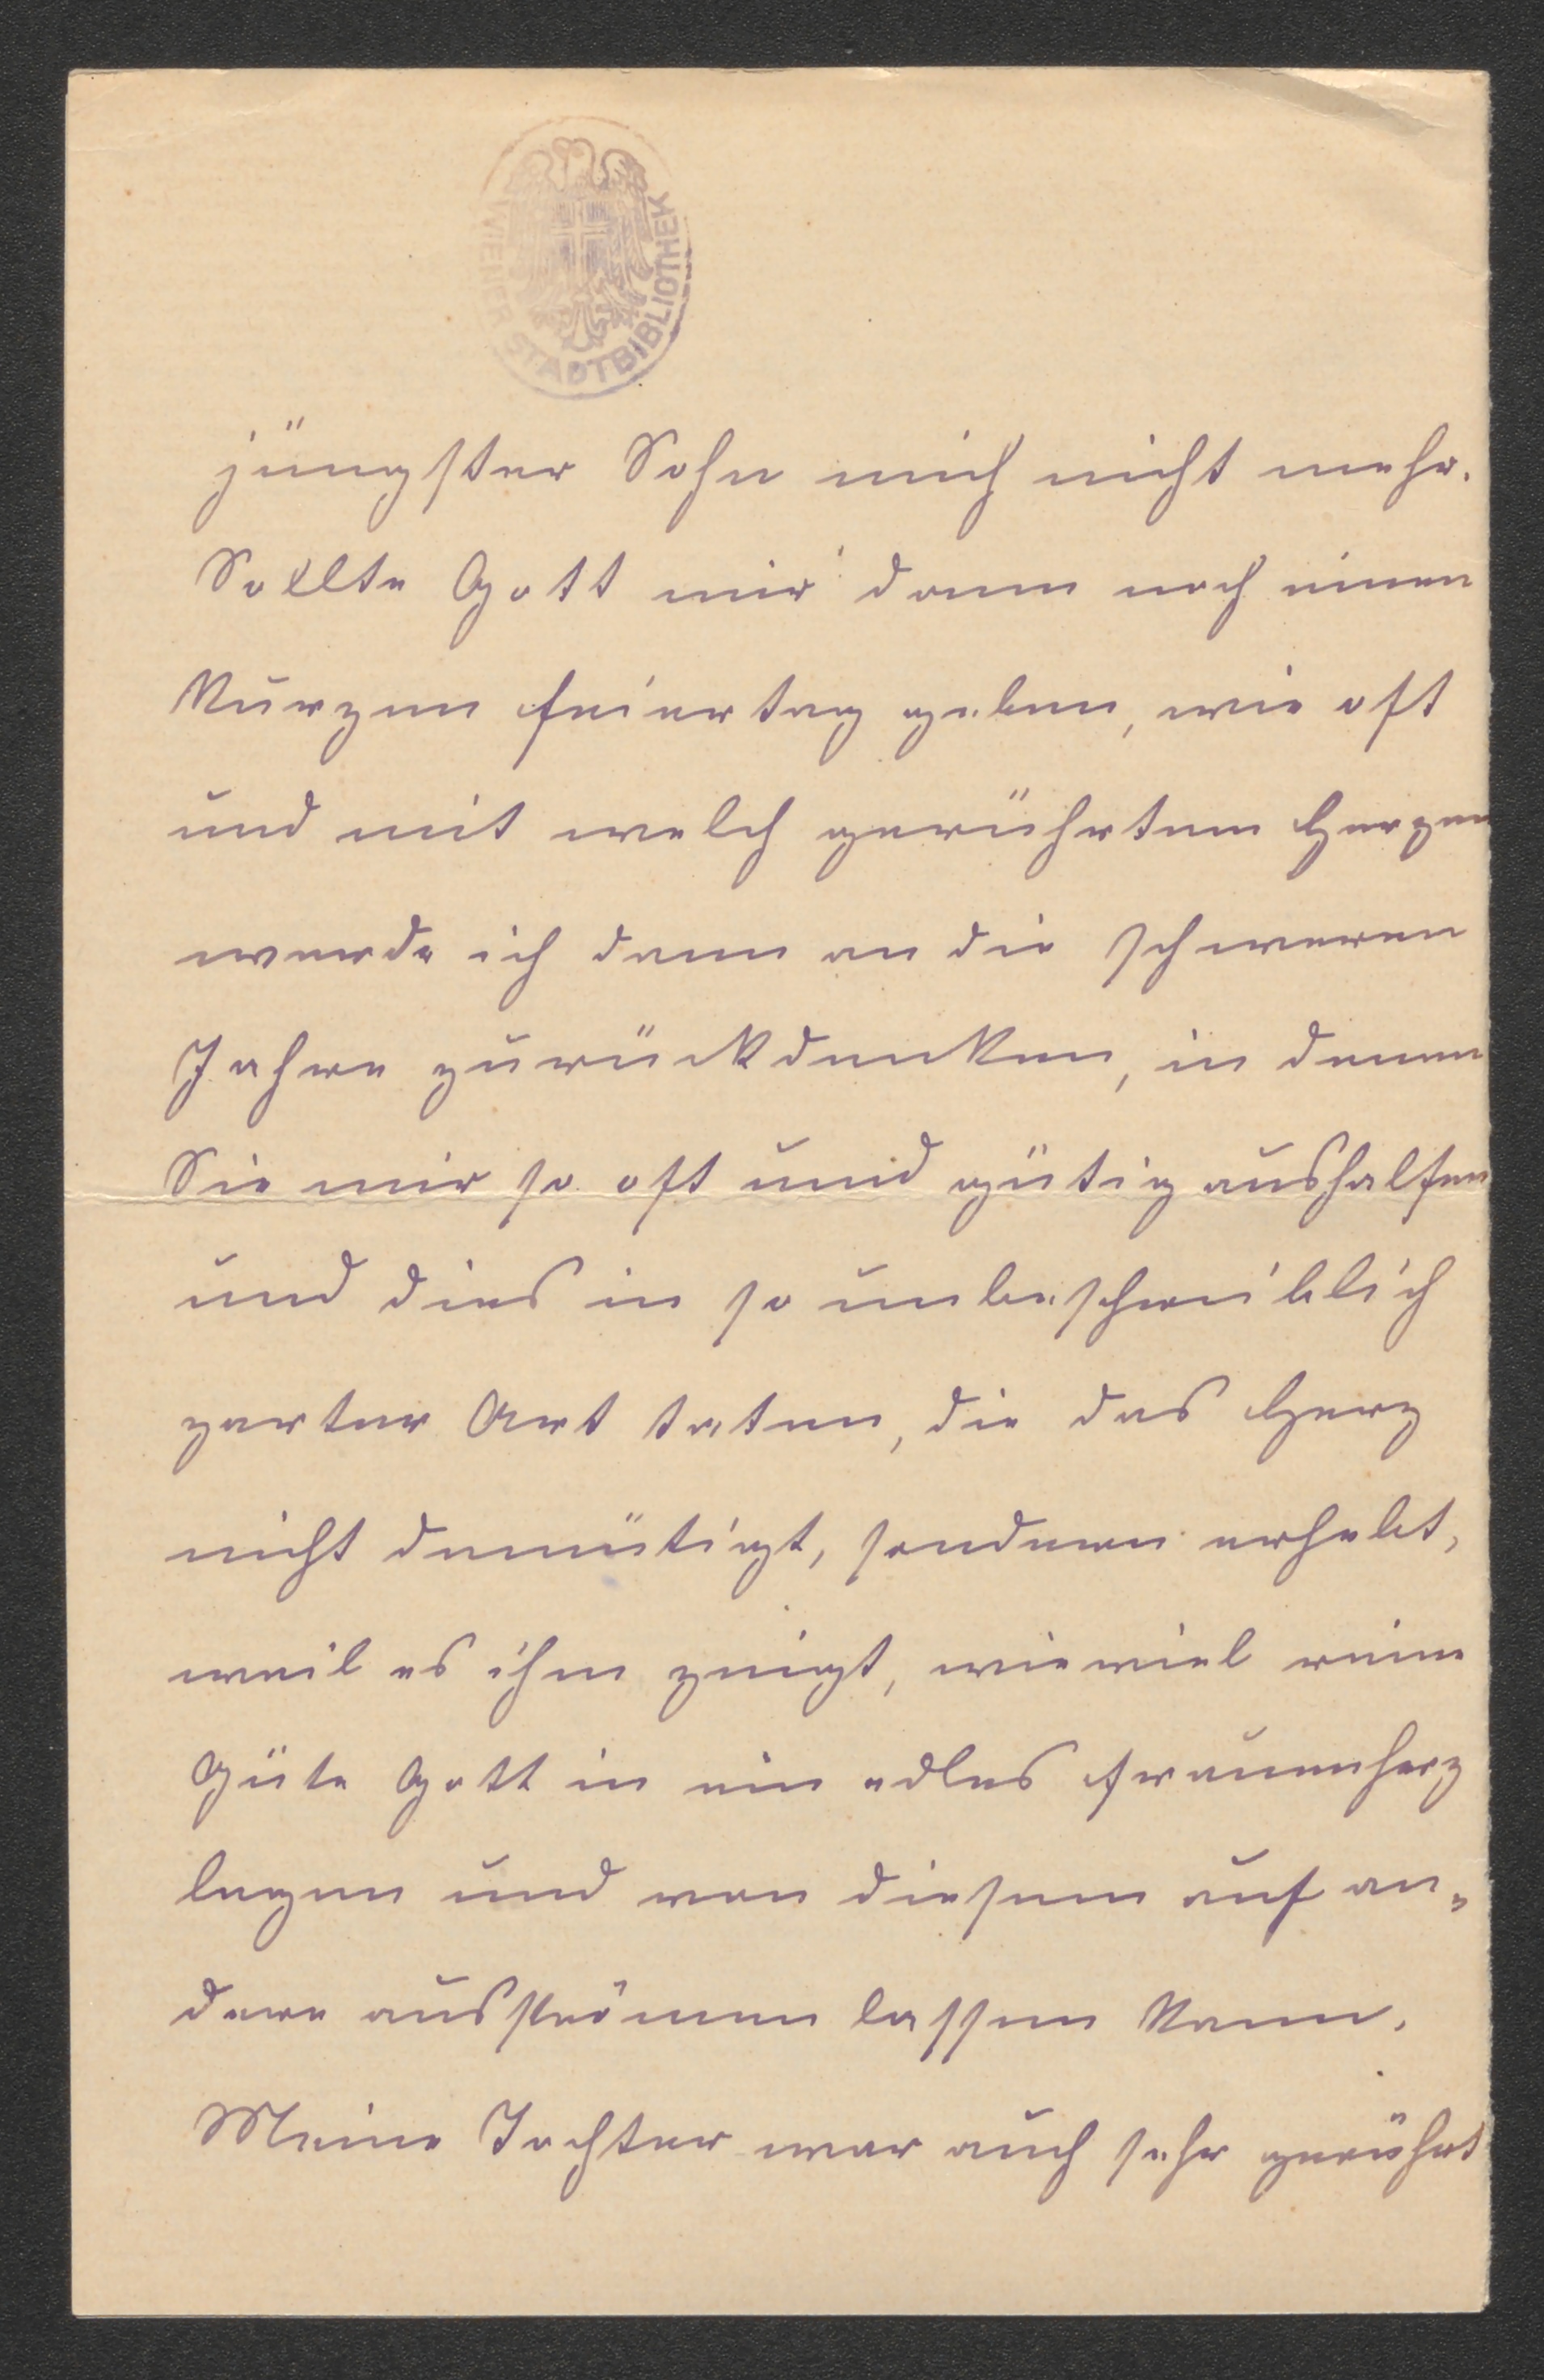 WIENER STADTBIBLIOTHEK
jüngster Sohn mich nicht mehr.
Sollte Gott mir dann noch einen
kurzen Feiertag geben, wie oft
und mit welch gerührtem Herzen
werde ich dann an die schweren
Jahre zurückdenken, in denen
Sie mir so oft und gütig aushalfen
und dies in so unbeschreiblich
zarter Art taten, die das Herz
nicht demütigt, sondern erhebt,
weil es ihm zeigt, wieviel reine
Güte Gott in ein edles Frauenherz
legen und von diesem auf an-
dere ausströmen lassen kann.
Meine Tochter war auch sehr gerührt